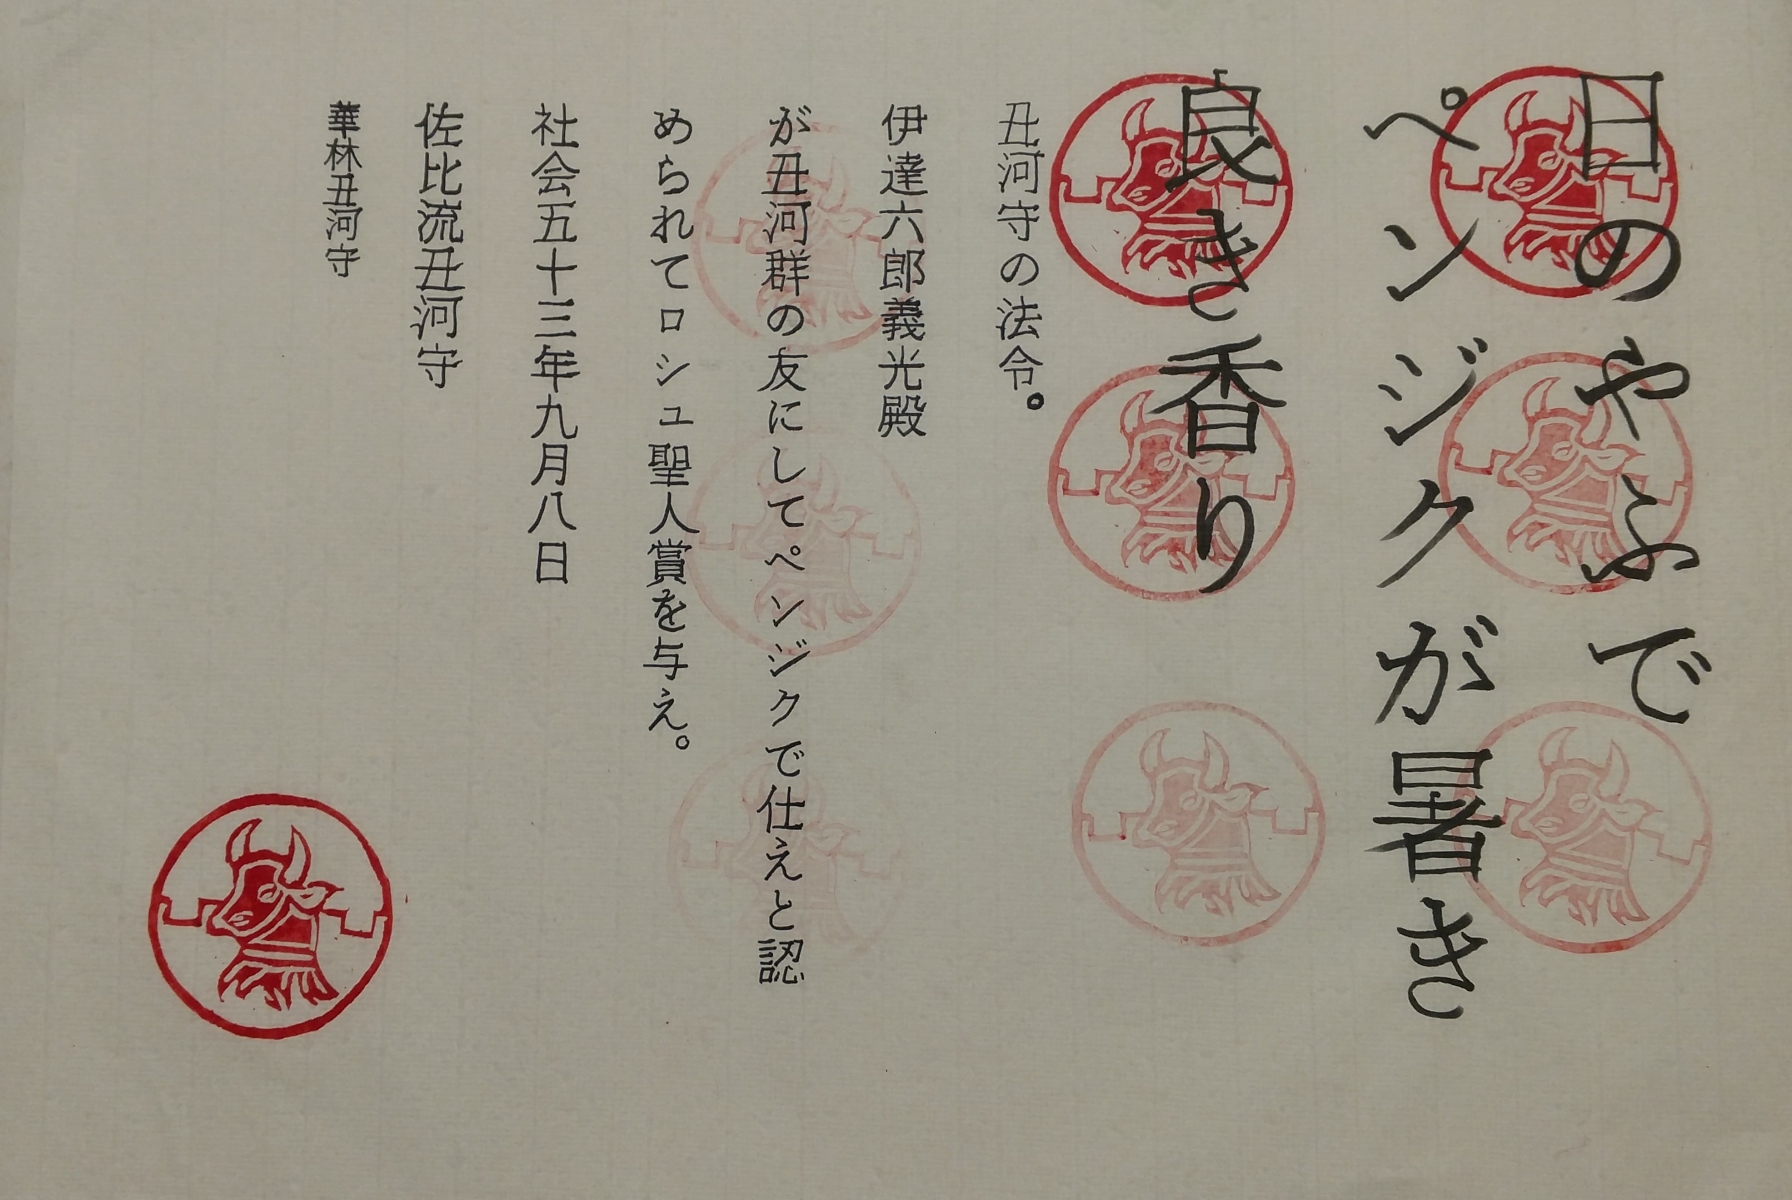 日のやふで
ペンジクが暑き
良き香り
丑河守の法令。
伊達六郎義光殿
が丑河群の友にしてペンジクで仕えと認
められてロシュ聖人賞を与え。
社会五十三年九月八日
佐比流丑河守
華林丑河守